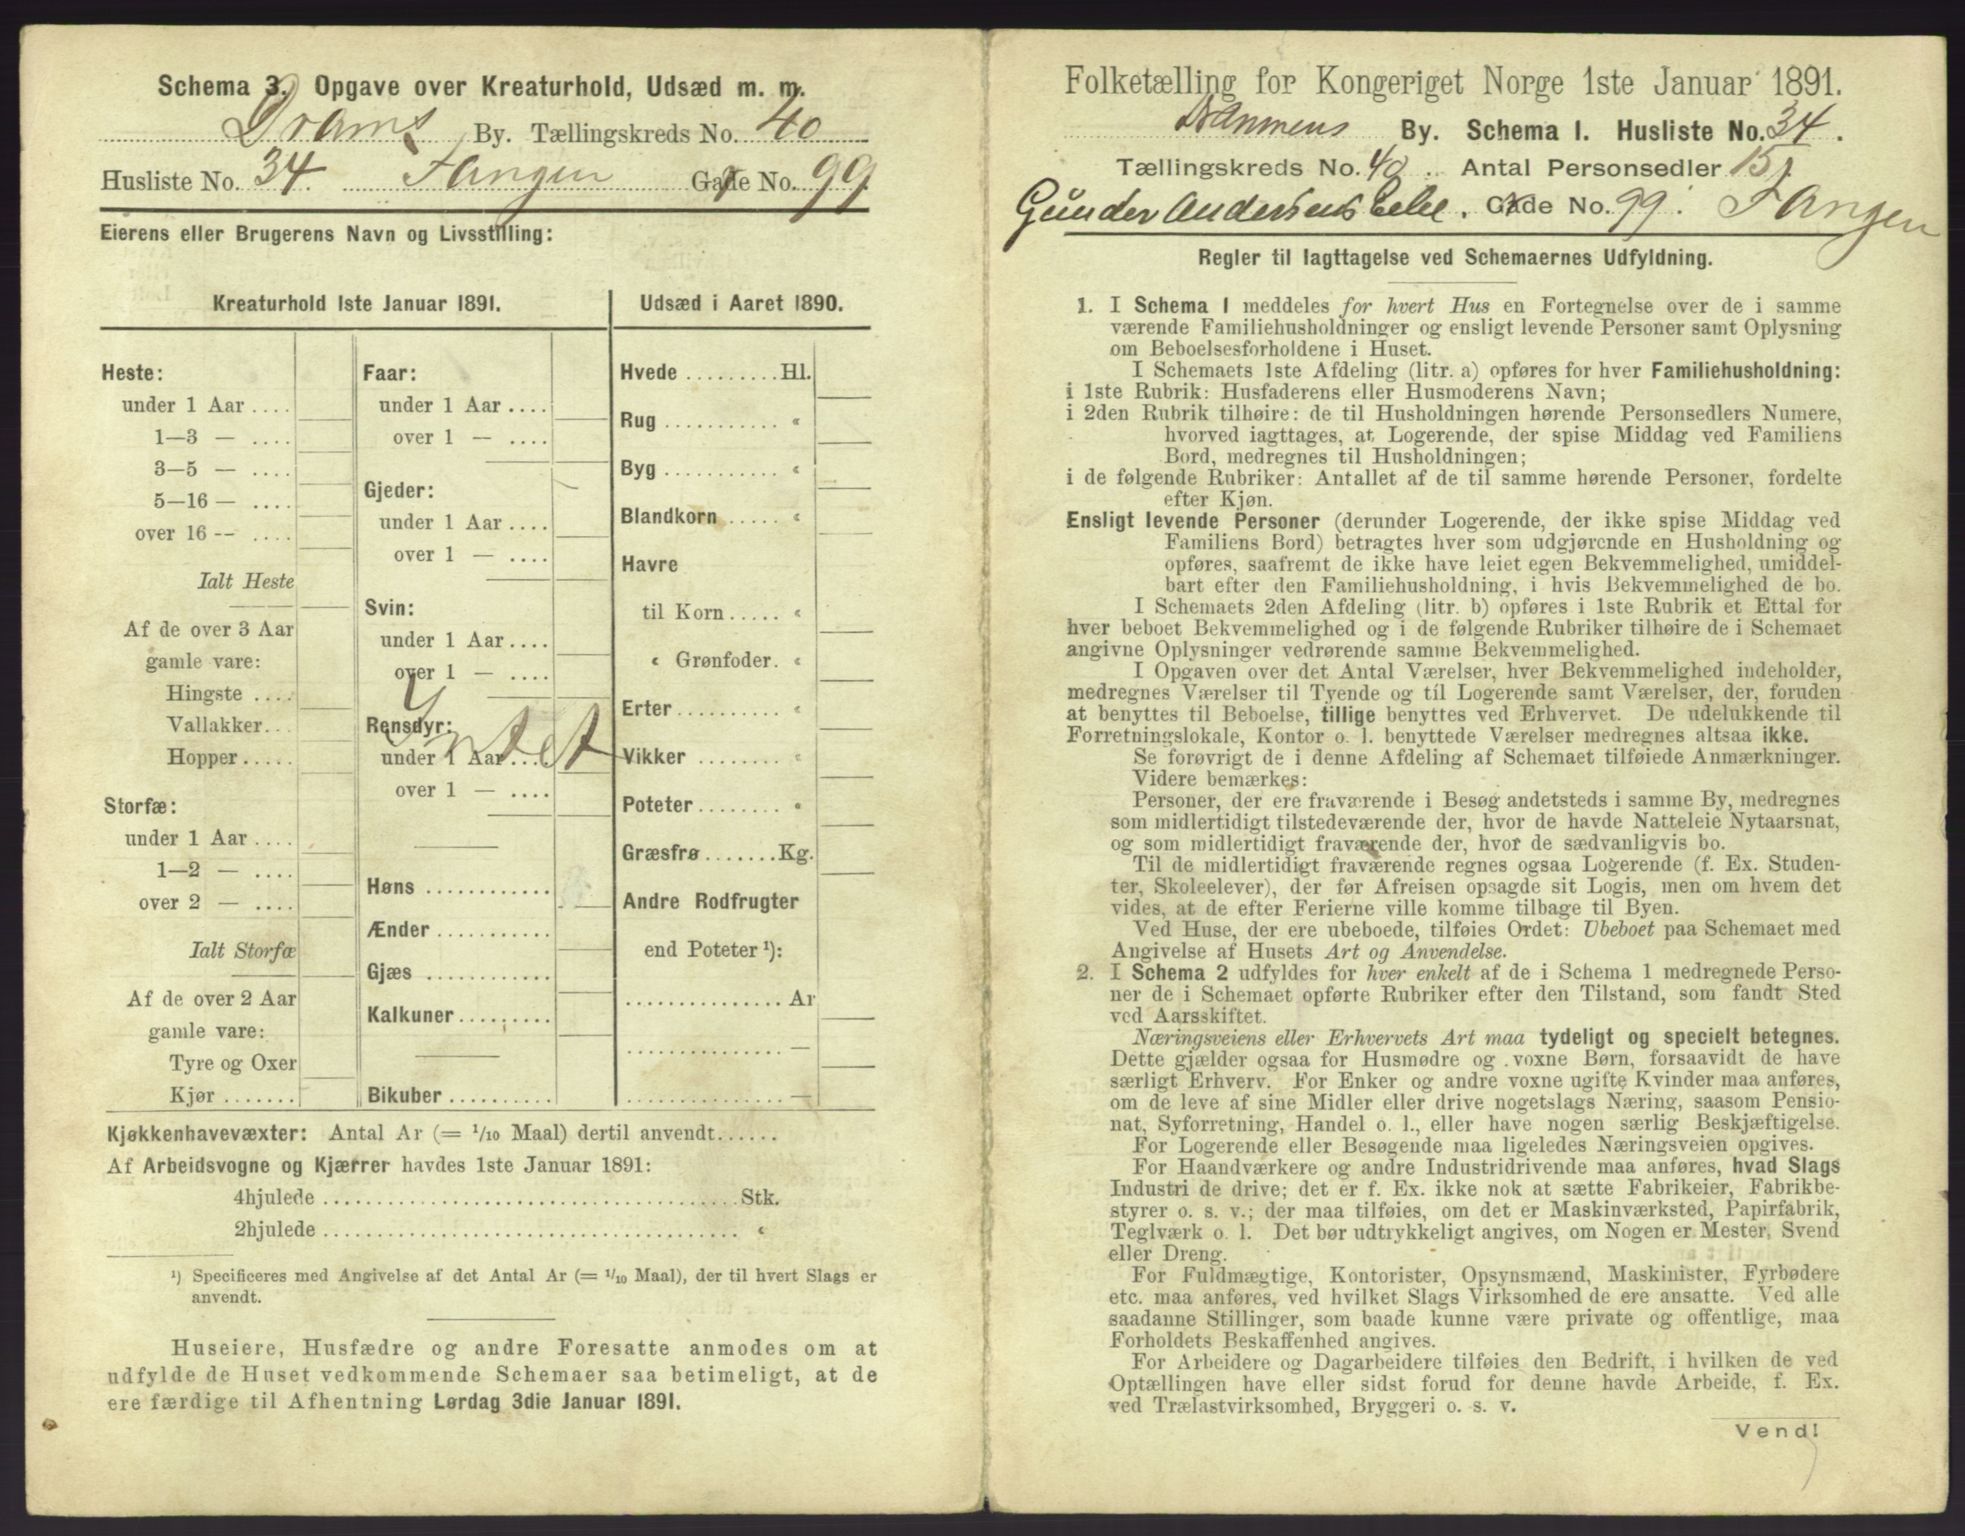 Schema 3. Opgave over Kreaturhold, Udsæd m. m.
Drams By. Tællingskreds No. 40
Husliste No. 34. Tangen Gade No. 99.
Eierens eller Brugerens Navn og Livsstilling:
Kreaturhold 1ste Januar 1891.
Heste:
under 1 Aar ....
1—3 — ....
3—5 — ....
5—16 — ....
over 16 — ....
Ialt Heste
Af de over 3 Aar
gamle vare:
Hingste ....
Vallakker...
Hopper.....
Storfæ:
under 1 Aar ....
1—2 — ....
over 2 — ....
Ialt Storfæ
Af de over 2 Aar
gamle vare:
Tyre og Oxer
Kjør .......
Faar:
under 1 Aar ....
over 1 — ....
Gjeder:
under 1 Aar ....
over 1 — ....
Svin:
under 1 Aar ....
over 1 — ....
Rensdyr:
Intet
under 1 Aar ....
over 1 — ....
Høns ...........
Ænder ...........
Gjæs ...........
Kalkuner.........
Bikuber ..........
Udsæd i Aaret 1890.
Hvede .........Hl.
Rug ........... "
Byg ........... "
Blandkorn ..... "
Havre
til Korn..... "
" Grønfoder. "
Erter.......... "
Vikker ........ "
Poteter........ "
Græsfrø.......Kg.
Andre Rodfrugter
end Poteter ¹):
............... Ar
............... —
............... —
Kjøkkenhavevæxter: Antal Ar (= 1/10 Maal) dertil anvendt......
Af Arbeidsvogne og Kjærrer havdes 1ste Januar 1891:
4hjulede ......................................Stk.
2hjulede ...................................... "
¹) Specificeres med Angivelse af det Antal Ar (= 1/10 Maal), der til hvert Slags er
anvendt.
Huseiere, Husfædre og andre Foresatte anmodes om at
udfylde de Huset vedkommende Schemaer saa betimeligt, at de
ere færdige til Afhentning Lørdag 3die Januar 1891.
Folketælling for Kongeriget Norge 1ste Januar 1891.
Drammens By. Schema 1. Husliste No. 34.
Tællingskreds No. 40. Antal Personsedler 15
Gunder Andersens Gade No. 99. Tangen
Regler til Iagttagelse ved Schemaernes Udfyldning.
1. I Schema 1 meddeles for hvert Hus en Fortegnelse over de i samme
værende Familiehusholdninger og ensligt levende Personer samt Oplysning
om Beboelsesforholdene i Huset.
I Schemaets 1ste Afdeling (litr. a) opføres for hver Familiehusholdning:
i 1ste Rubrik: Husfaderens eller Husmoderens Navn;
i 2den Rubrik tilhøire: de til Husholdningen hørende Personsedlers Numere,
hvorved iagttages, at Logerende, der spise Middag ved Familiens
Bord, medregnes til Husholdningen;
i de følgende Rubriker: Antallet af de til samme hørende Personer, fordelte
efter Kjøn.
Ensligt levende Personer (derunder Logerende, der ikke spise Middag ved
Familiens Bord) betragtes hver som udgjørende en Husholdning og
opføres, saafremt de ikke have leiet egen Bekvemmelighed, umiddel-
bart efter den Familiehusholdning, i hvis Bekvemmelighed de bo.
I Schemaets 2den Afdeling (litr. b) opføres i 1ste Rubrik et Ettal for
hver beboet Bekvemmelighed og i de følgende Rubriker tilhøire de i Schemaet
angivne Oplysninger vedrørende samme Bekvemmelighed.
I Opgaven over det Antal Værelser, hver Bekvemmelighed indeholder,
medregnes Værelser til Tyende og til Logerende samt Værelser, der, foruden
at benyttes til Beboelse, tillige benyttes ved Erhvervet. De udelukkende til
Forretningslokale, Kontor o. l. benyttede Værelser medregnes altsaa ikke.
Se forøvrigt de i denne Afdeling af Schemaet tilføiede Anmærkninger.
Videre bemærkes:
Personer, der ere fraværende i Besøg andetsteds i samme By, medregnes
som midlertidigt tilstedeværende der, hvor de havde Natteleie Nytaarsnat,
og som midlertidigt fraværende der, hvor de sædvanligvis bo.
Til de midlertidigt fraværende regnes ogsaa Logerende (f. Ex. Studen-
ter, Skoleelever), der før Afreisen opsagde sit Logis, men om hvem det
vides, at de efter Ferierne ville komme tilbage til Byen.
Ved Huse, der ere ubeboede, tilføies Ordet: Ubeboet paa Schemaet med
Angivelse af Husets Art og Anvendelse.
2. I Schema 2 udfyldes for hver enkelt af de i Schema 1 medregnede Perso-
ner de i Schemaet opførte Rubriker efter den Tilstand, som fandt Sted
ved Aarsskiftet.
Næringsveiens eller Erhvervets Art maa tydeligt og specielt betegnes.
Dette gjælder ogsaa for Husmødre og voxne Børn, forsaavidt de have
særligt Erhverv. For Enker og andre voxne ugifte Kvinder maa anføres,
om de leve af sine Midler eller drive nogetslags Næring, saasom Pensio-
nat, Syforretning, Handel o. l., eller have nogen særlig Beskjæftigelse.
For Logerende eller Besøgende maa ligeledes Næringsveien opgives.
For Haandværkere og andre Industridrivende maa anføres, hvad Slags
Industri de drive; det er f. Ex. ikke nok at sætte Fabrikeier, Fabrikbe-
styrer o. s. v.; der maa tilføies, om det er Maskinværksted, Papirfabrik,
Teglværk o. l. Det bør udtrykkeligt angives, om Nogen er Mester, Svend
eller Dreng.
For Fuldmægtige, Kontorister, Opsynsmænd, Maskinister, Fyrbødere
etc. maa anføres, ved hvilket Slags Virksomhed de ere ansatte. Ved alle
saadanne Stillinger, som baade kunne være private og offentlige, maa
Forholdets Beskaffenhed angives.
For Arbeidere og Dagarbeidere tilføies den Bedrift, i hvilken de ved
Optællingen have eller sidst forud for denne havde Arbeide, f. Ex.
ved Trælastvirksomhed, Bryggeri o. s. v.
Vend!